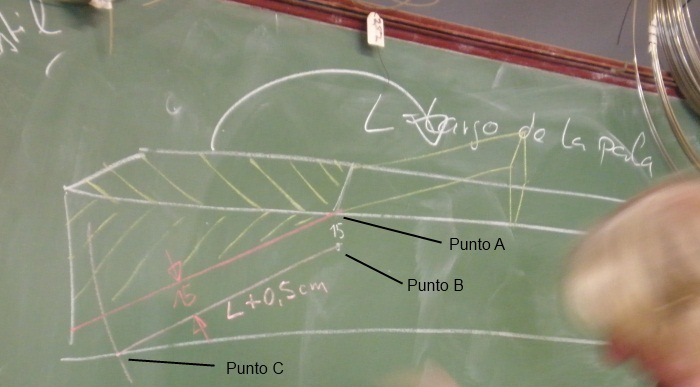 L = Largo de la pala
15
Punto A
Punto B
15
L + 0,5 cm
Punto C